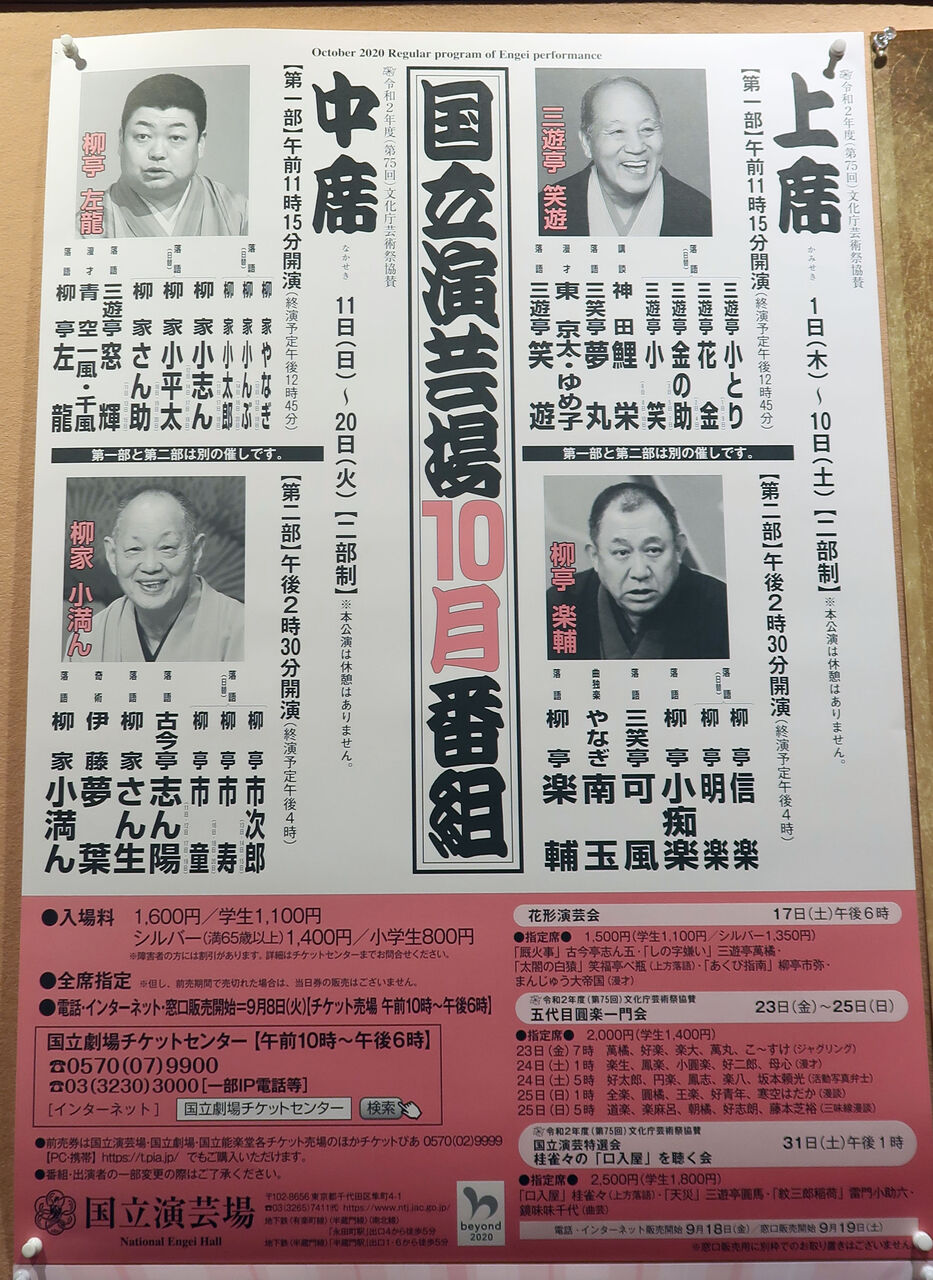 October 2020 Regular program of Engei performance
国立演芸場10月番組
令和2年度(第75回)文化庁芸術祭協賛
上席
かみせき
1日(木)～10日(土)【二部制】※本公演は休憩はありません。
【第一部】午前11時15分開演(終演予定午後12時45分)
三遊亭 笑遊
落語(日替) 三遊亭小とり
三遊亭花金
三遊亭金の助
三遊亭小笑
講談 神田鯉栄
落語 三笑亭夢丸
漫才 東京太・ゆめ子
落語 三遊亭笑遊
第一部と第二部は別の催しです。
【第二部】午後2時30分開演(終演予定午後4時)
柳亭 楽輔
落語(日替) 柳亭信楽
柳亭明楽
落語 柳亭小痴楽
落語 三笑亭可風
曲独楽 やなぎ南玉
落語 柳亭楽輔
令和2年度(第75回)文化庁芸術祭協賛
中席
なかせき
11日(日)～20日(火)【二部制】※本公演は休憩はありません。
【第一部】午前11時15分開演(終演予定午後12時45分)
柳亭 左龍
落語(日替) 柳家やなぎ
柳家小んぶ
柳家小太郎
落語(日替) 柳家小志ん
柳家小平太
柳家さん助
落語 三遊亭窓輝
漫才 青空一風・千風
落語 柳亭左龍
第一部と第二部は別の催しです。
【第二部】午後2時30分開演(終演予定午後4時)
柳家 小満ん
落語(日替) 柳亭市次郎
柳亭市寿
柳亭市童
落語 古今亭志ん陽
落語 柳家さん生
奇術 伊藤夢葉
落語 柳家小満ん
●入場料 1,600円／学生1,100円
シルバー(満65歳以上)1,400円／小学生800円
※障害者の方には割引があります。詳細はチケットセンターまでお問合せください。
●全席指定 ※但し、前売期間で売切れた場合は、当日券の販売はございません。
●電話・インターネット・窓口販売開始=9月8日(火)[チケット売場 午前10時～午後6時]
国立劇場チケットセンター【午前10時～午後6時】
☎0570(07)9900
☎03(3230)3000[一部IP電話等]
[インターネット] 国立劇場チケットセンター 検索
●前売券は国立演芸場・国立劇場・国立能楽堂各チケット売場のほかチケットぴあ 0570(02)9999
【PC・携帯】https://t.pia.jp/ でもご購入いただけます。
●番組・出演者の一部変更の際はご了承ください。
国立演芸場
National Engei Hall
〒102-8656 東京都千代田区隼町4-1
☎03(3265)7411㈹ https://www.ntj.jac.go.jp/
地下鉄(有楽町線)(半蔵門線)(南北線)
「永田町駅」出口4から徒歩5分
地下鉄(半蔵門線)「半蔵門駅」出口1・6から徒歩5分
beyond
2020
花形演芸会 17日(土)午後6時
●指定席● 1,500円(学生1,100円／シルバー1,350円)
「厩火事」古今亭志ん五・「しの字嫌い」三遊亭萬橘・
「太閤の白猿」笑福亭べ瓶(上方落語)・「あくび指南」柳亭市弥・
まんじゅう大帝国(漫才)
令和2年度(第75回)文化庁芸術祭協賛
五代目圓楽一門会 23日(金)～25日(日)
●指定席● 2,000円(学生1,400円)
23日(金)7時 萬橘、好楽、楽大、萬丸、こ～すけ(ジャグリング)
24日(土)1時 楽生、鳳楽、小圓楽、好二郎、母心(漫才)
24日(土)5時 好太郎、円楽、鳳志、楽八、坂本頼光(活動写真弁士)
25日(日)1時 全楽、圓橘、王楽、好青年、寒空はだか(漫談)
25日(日)5時 道楽、楽麻呂、朝橘、好志朗、藤本芝裕(三味線漫談)
令和2年度(第75回)文化庁芸術祭協賛
国立演芸特選会
桂雀々の「口入屋」を聴く会 31日(土)午後1時
●指定席● 2,500円(学生1,800円)
「口入屋」桂雀々(上方落語)・「天災」三遊亭圓馬・「紋三郎稲荷」雷門小助六・
鏡味味千代(曲芸)
電話・インターネット販売開始 9月18日(金)／窓口販売開始 9月19日(土)
※窓口販売用に別枠でのお取り置きはございません。